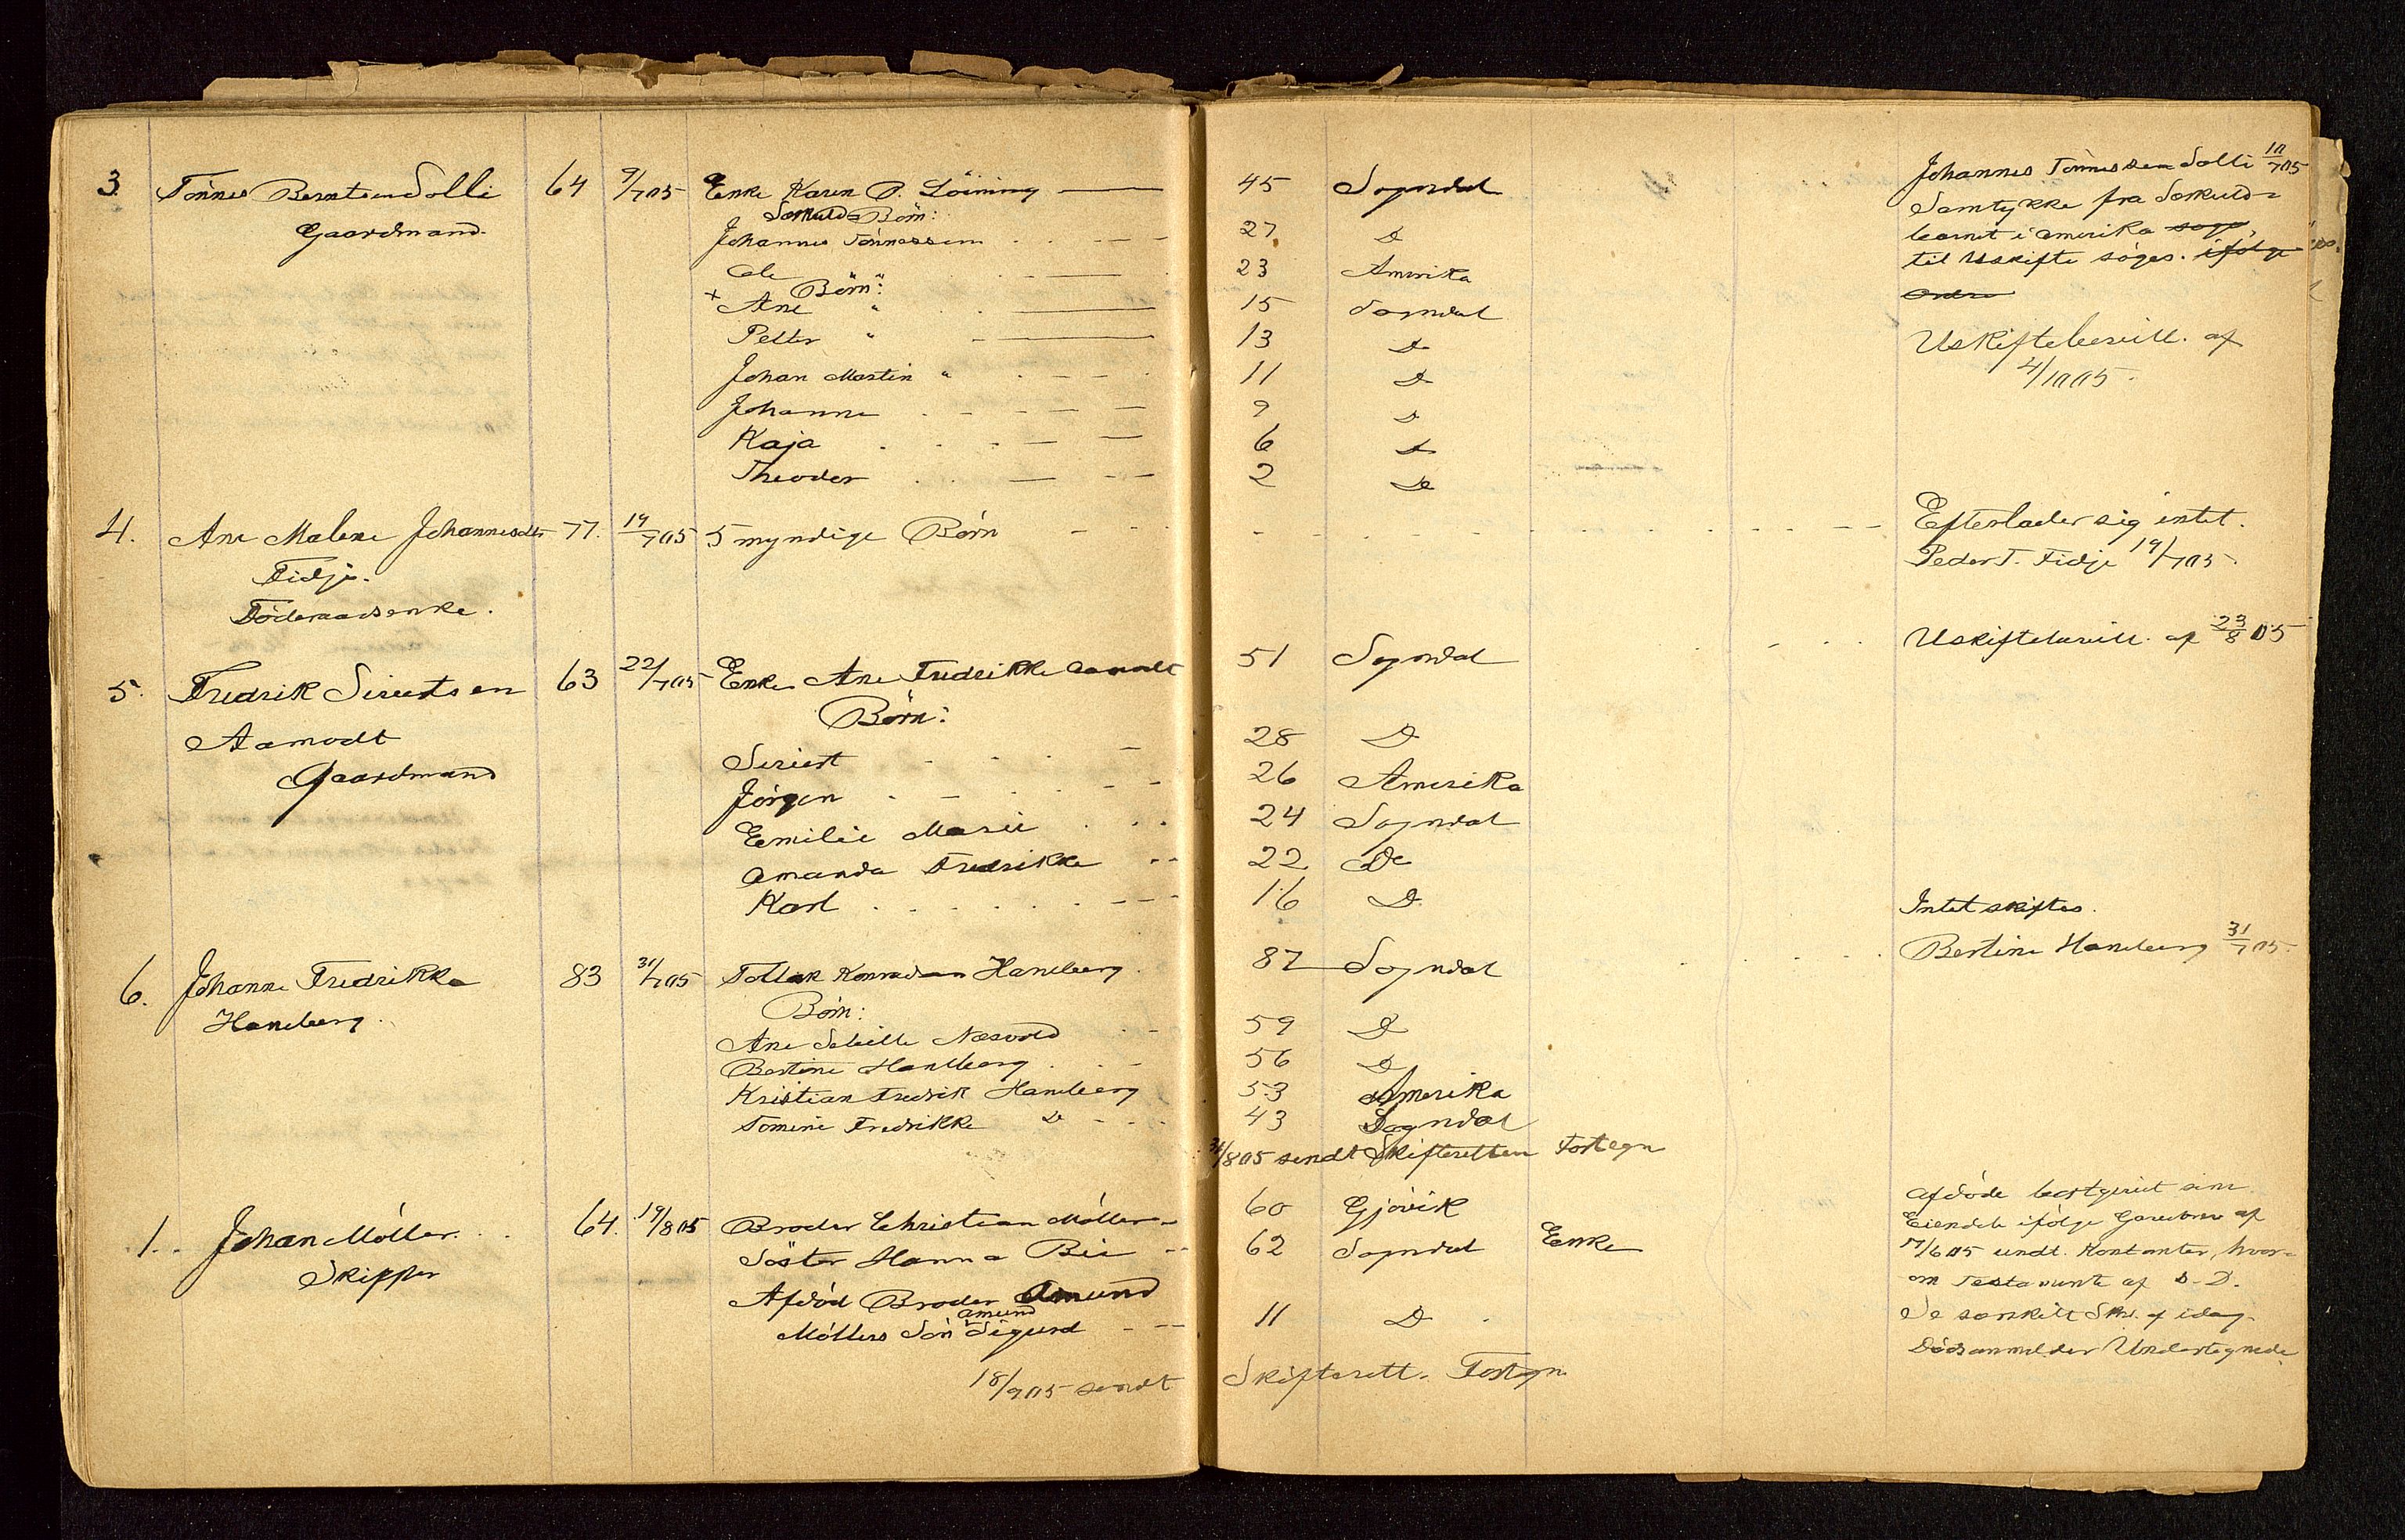 3. Tönnes Berntsen Solli 64 9/7 05 Enke Karen P. Löining 45 Sogndal Johannes Tönnessen Solli 10/7 05
Gaardmand. Særkulds Börn: Samtykke fra Særkuld-
Johannes Tönnessen 27 D barnet i Amerika
Ole " 23 Amerika til Uskifte söges. ifölge
Börn: Ordre
+ Ane " 15 Sogndal
Petter " 13 D Uskiftebevill. af
Johan Martin " 11 D 4/10 05.
Johanne 9 D
Kaja 6 D
Theodor 2 Do
4. Ane Malene Johannesdtr 77. 19/7 05 5 myndige Börn Efterlader sig intet.
Fidje. Peder T. Fidje 19/7 05.
Föderaadsenke.
5. Fredrik Sivertsen 63 22/7 05 Enke Ane Fredrikke Aamodt 51 Sogndal Uskiftebevill. af 23/8 05
Aamodt Börn:
Gaardmand Sivert 28 D
Jörgen 26 Amerika
Emilie Marie 24 Sogndal
Amanda Fredrikke 22 Do
Karl 16 D
Intet skiftes.
6. Johanne Fredrikke 83 31/7 05 Tollak Konradsen Haneberg 87 Sogndal Bertine Haneberg 31/7 05.
Haneberg. Börn:
Ane Sebille Næsvold 59 D
Bertine Haneberg 56 D
Kristian Fredrik Haneberg 53 Amerika
Tomine Fredrikke Do 43 Sogndal
31/8 05 sendt Skifteretten Fortegn
1. Johan Möller 64. 19/8 05 Broder Christian Möller 60 Gjövik Afdöde bortgivet sine
Skipper Söster Hanna Bie 62 Sogndal Enke Eiendele ifölge Gavebrev af
Afdöd Broder Amund 17/6 05 undt. Kontanter, hvor-
amund om Testamente af s. D.
Möllers Sön Sigurd 11 D Se særskilt Skr. af idag.
Dödsanmelder Undertegnede
18/9 05 sendt Skifterett. Fortegn.